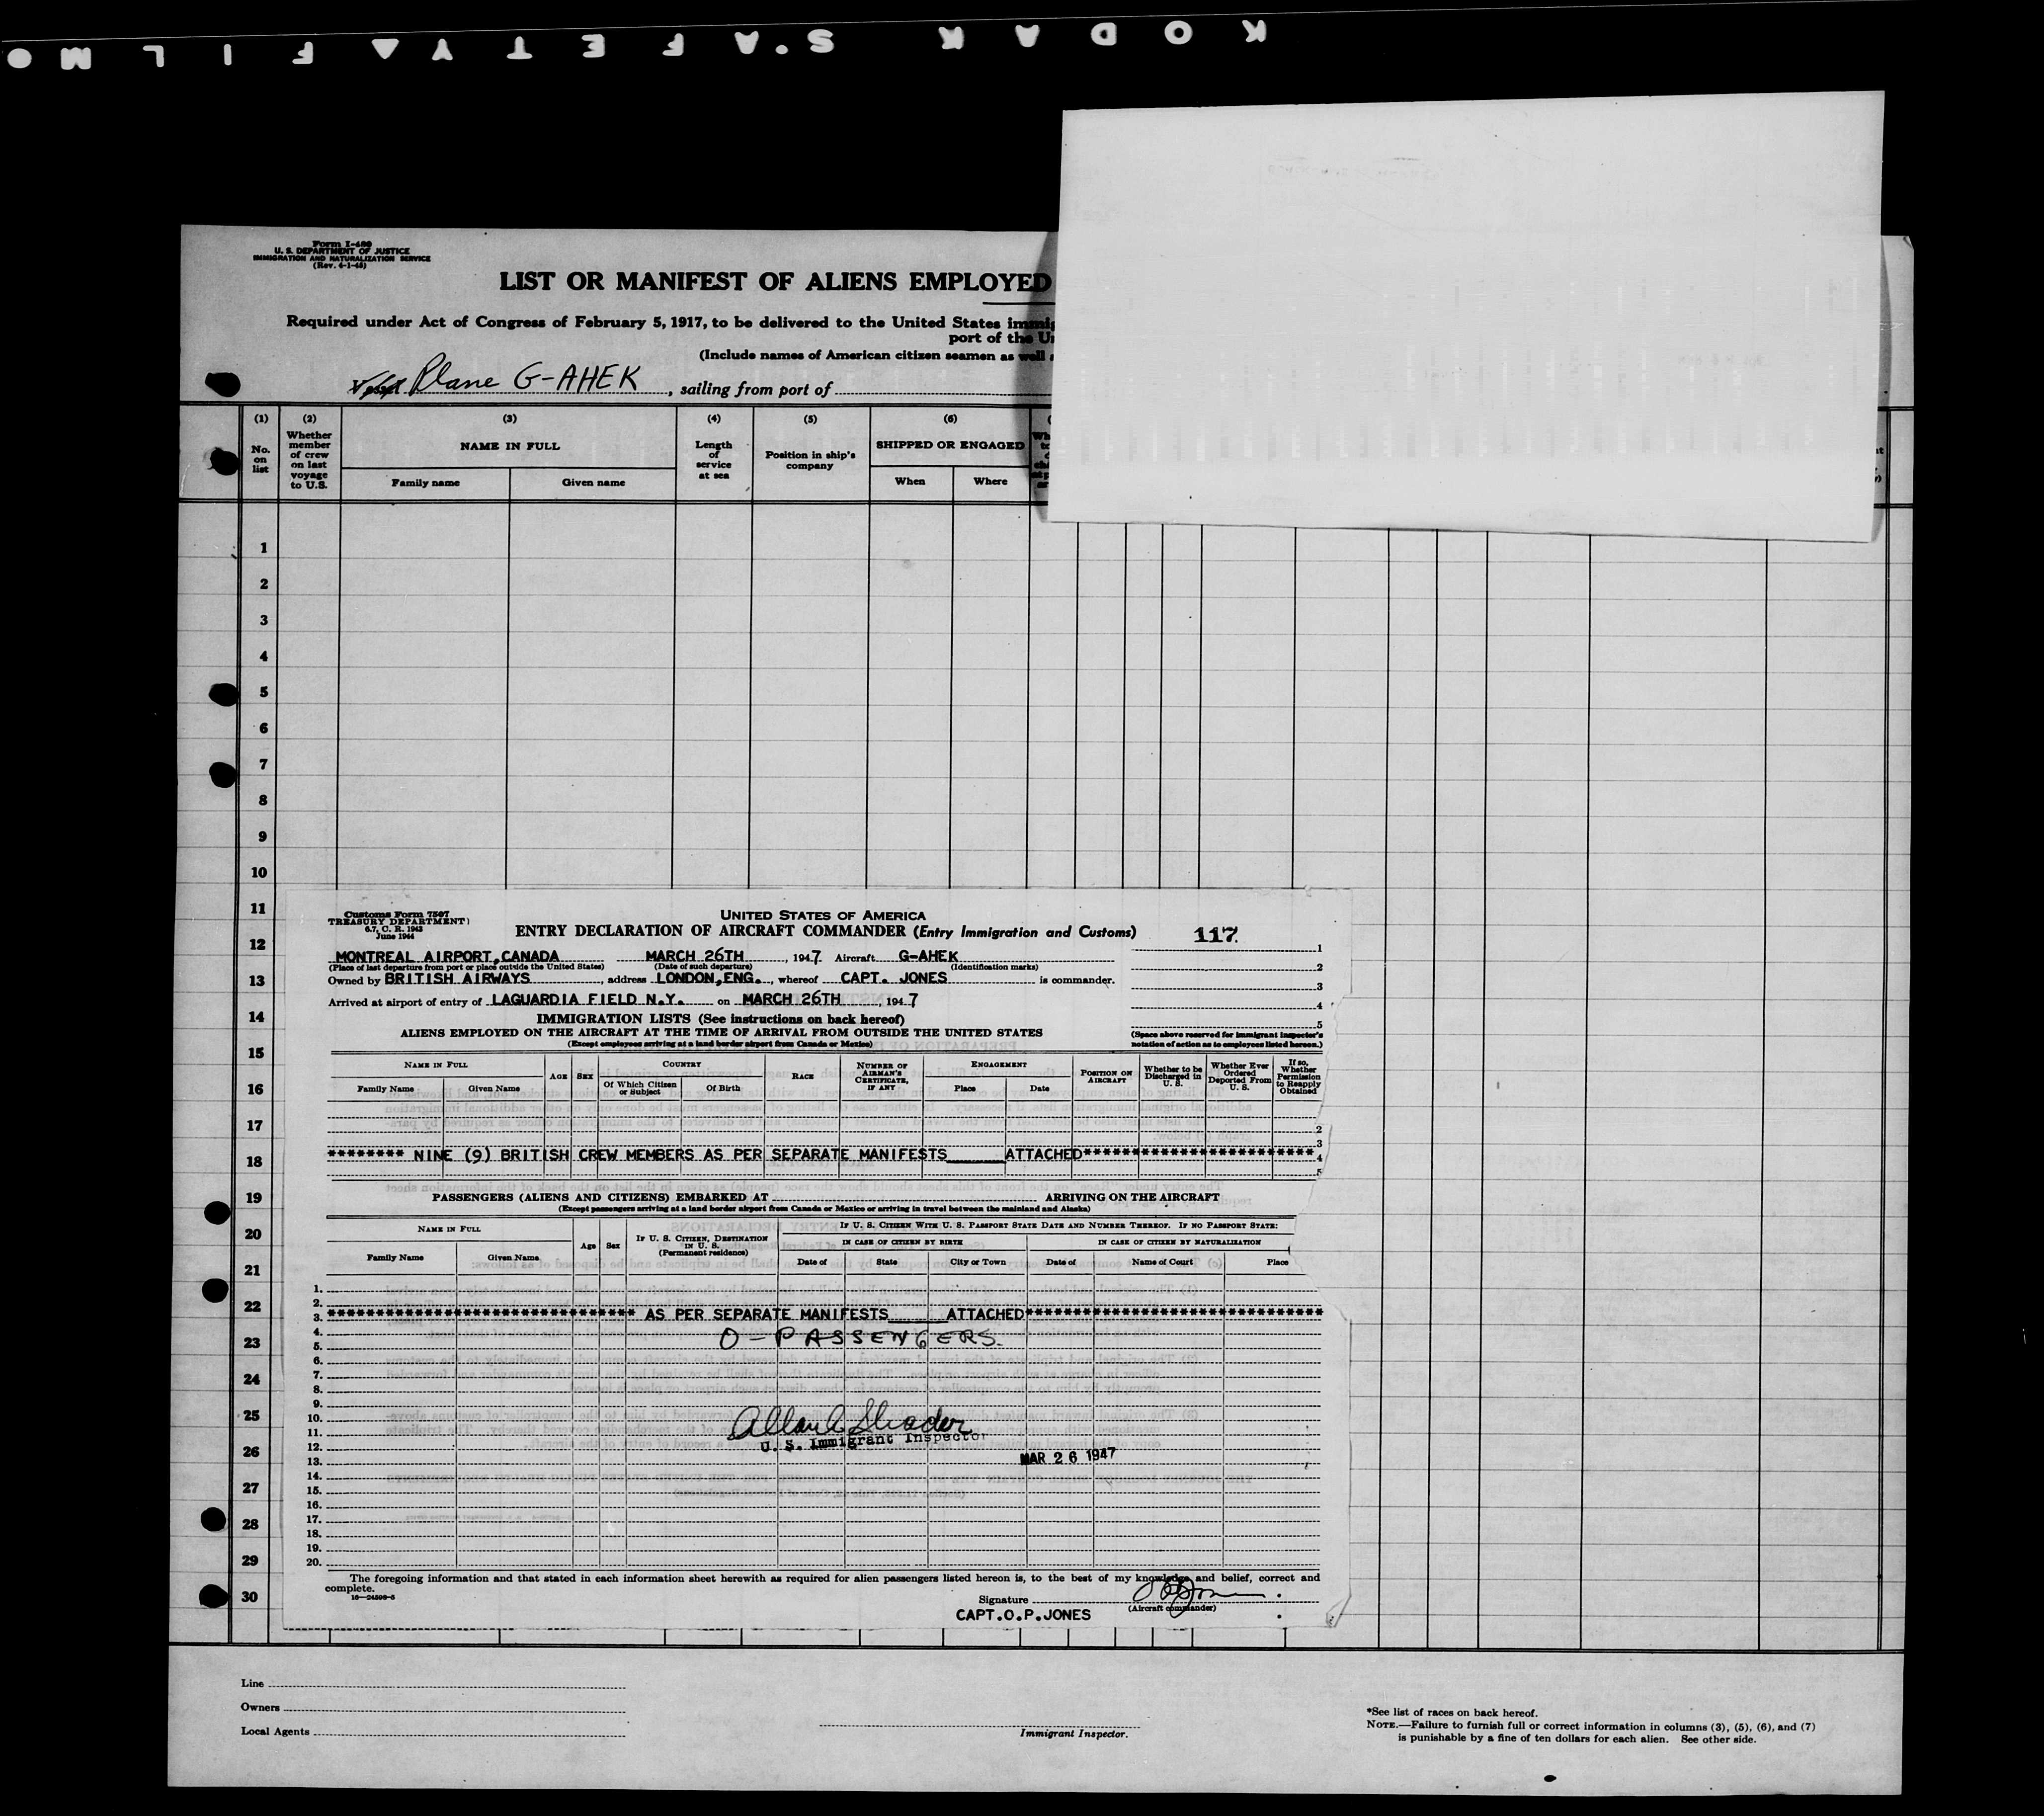 KODAK SAFETY FILM
Form I-480
U. S. DEPARTMENT OF JUSTICE
IMMIGRATION AND NATURALIZATION SERVICE
(Rev. 4-1-45)
LIST OR MANIFEST OF ALIENS EMPLOYED
Required under Act of Congress of February 5, 1917, to be delivered to the United States
port of the
(Include names of American citizen seamen as well
Vessel Plane G-AHEK, sailing from port of
(1) (2) (3) (4) (5) (6)
No. on list
Whether member of crew on last voyage to U.S.
NAME IN FULL
Family name Given name
Length of service at sea
Position in ship's company
SHIPPED OR ENGAGED
When Where
1
2
3
4
5
6
7
8
9
10
11
12
13
14
15
16
17
18
19
20
21
22
23
24
25
26
27
28
29
30
Customs Form 7507
TREASURY DEPARTMENT
6.7, C. R. 1943
June 1944
UNITED STATES OF AMERICA
ENTRY DECLARATION OF AIRCRAFT COMMANDER (Entry Immigration and Customs)
117
MONTREAL AIRPORT, CANADA MARCH 26TH, 1947. Aircraft G-AHEK
(Place of last departure from port or place outside the United States) (Date of such departure) (Identification marks)
Owned by BRITISH AIRWAYS, address LONDON, ENG., whereof CAPT. JONES is commander.
Arrived at airport of entry of LAGUARDIA FIELD N.Y. on MARCH 26TH, 1947
1
2
3
4
5
(Space above reserved for immigrant inspector's notation of action as to employees listed hereon.)
IMMIGRATION LISTS (See instructions on back hereof)
ALIENS EMPLOYED ON THE AIRCRAFT AT THE TIME OF ARRIVAL FROM OUTSIDE THE UNITED STATES
(Except employees arriving at a land border airport from Canada or Mexico)
NAME IN FULL
Family Name Given Name
AGE SEX
COUNTRY
Of Which Citizen or Subject Of Birth
RACE
NUMBER OF AIRMAN'S CERTIFICATE, IF ANY
ENGAGEMENT
Place Date
POSITION ON AIRCRAFT
Whether to be Discharged in U. S.
Whether Ever Ordered Deported From U. S.
If so, Whether Permission to Reapply Obtained
2
3
4
5
******** NINE (9) BRITISH CREW MEMBERS AS PER SEPARATE MANIFESTS______ATTACHED************************
PASSENGERS (ALIENS AND CITIZENS) EMBARKED AT ARRIVING ON THE AIRCRAFT
(Except passengers arriving at a land border airport from Canada or Mexico or arriving in travel between the mainland and Alaska)
NAME IN FULL
Family Name Given Name
Age Sex
IF U. S. CITIZEN, DESTINATION IN U. S.
(Permanent residence)
IF U. S. CITIZEN WITH U. S. PASSPORT STATE DATE AND NUMBER THEREOF. IF NO PASSPORT STATE:
IN CASE OF CITIZEN BY BIRTH IN CASE OF CITIZEN BY NATURALIZATION
Date of State City or Town Date of Name of Court Place
1.
2.
3. ****************************** AS PER SEPARATE MANIFESTS______ATTACHED******************************
4. 0 - PASSENGERS.
5.
6.
7.
8.
9.
10.
11.
12.
13.
14.
15.
16.
17.
18.
19.
20.
U. S. Immigrant Inspector
MAR 26 1947
The foregoing information and that stated in each information sheet herewith as required for alien passengers listed hereon is, to the best of my knowledge and belief, correct and
complete.
16—24598-5
Signature
(Aircraft commander)
CAPT.O.P.JONES
Line
Owners
Local Agents
Immigrant Inspector.
*See list of races on back hereof.
NOTE.—Failure to furnish full or correct information in columns (3), (5), (6), and (7)
is punishable by a fine of ten dollars for each alien. See other side.